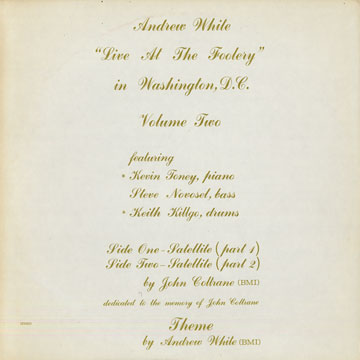 Andrew White
"Live At The Foolery"
in Washington, D.C.
Volume Two
featuring
* Kevin Toney, piano
Steve Novosel, bass
* Keith Killgo, drums
Side One - Satellite (part 1)
Side Two - Satellite (part 2)
by John Coltrane (BMI)
dedicated to the memory of John Coltrane
Theme
by Andrew White (BMI)